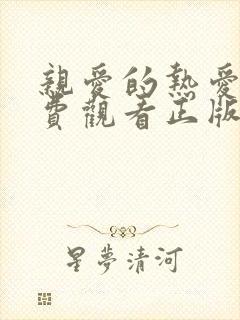 親愛的熱愛
費觀看正版
星夢清河